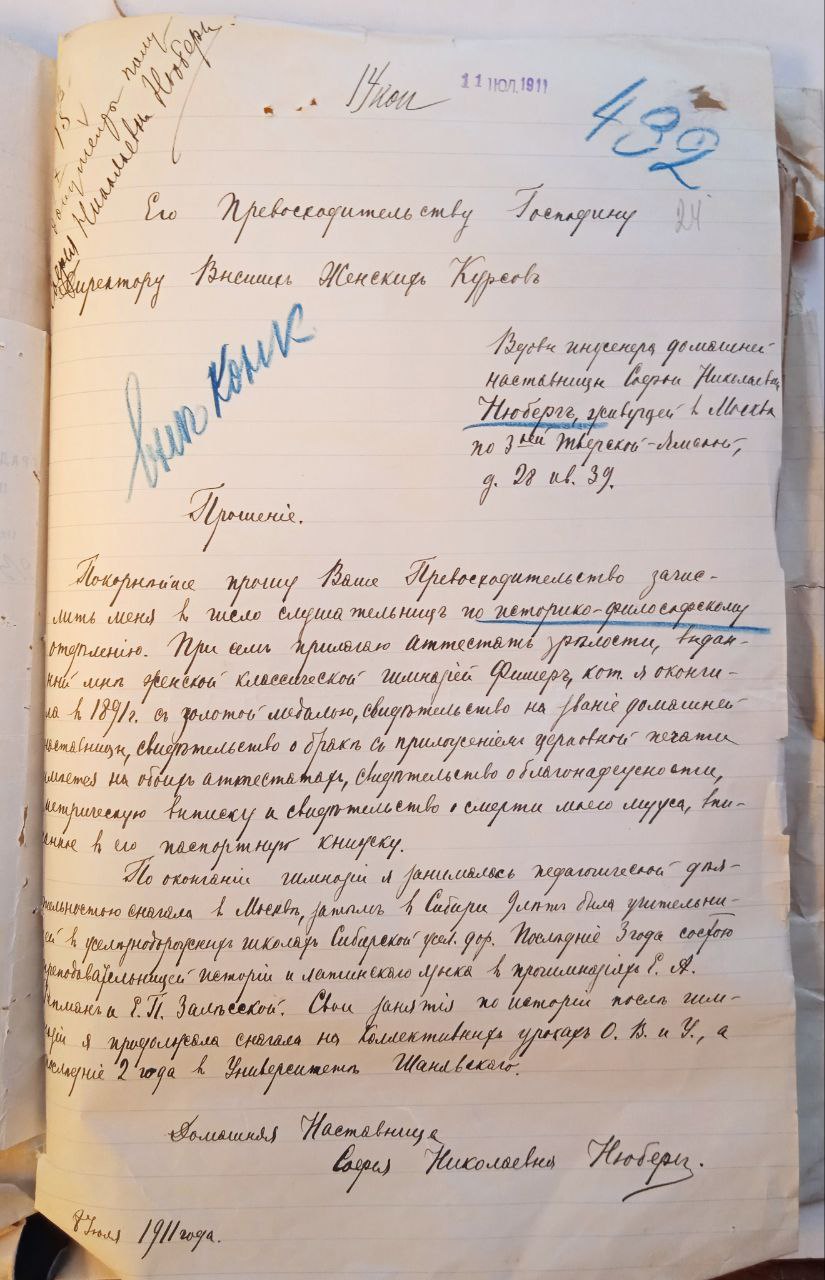 14 коп
11 ІЮЛ. 1911
432
24
Софія Николаевна Нюбергъ
Его Превосходительству Господину
Директору Высшихъ Женскихъ Курсовъ
внѣ конк
Вдовы инженера домашней
наставницы Софьи Николаевны
Нюбергъ, живущей в Москвѣ
по 3ней Тверской-Ямской,
д. 28 кв. 39.
Прошеніе.
Покорнѣйше прошу Ваше Превосходительство зачис-
лить меня в число слушательницъ по историко-философскому
отдѣленію. При семъ прилагаю аттестатъ зрѣлости, выдан-
ный мнѣ женской классической гимназіей Фишеръ, кот. я окончи-
ла в 1891 г. съ золотой медалью, свидѣтельство на званіе домашней
наставницы, свидѣтельство о бракѣ съ приложеніемъ церковной печати
имѣется на обоихъ аттестатахъ, свидѣтельство о благонадежности,
метрическую выписку и свидѣтельство о смерти моего мужа, впи-
санное в его паспортную книжку.
По окончаніи гимназіи я занималась педагогической дѣя-
тельностью сначала в Москвѣ, затѣмъ в Сибири 9 лѣтъ была учительни-
цей в желѣзнодорожныхъ школахъ Сибирской жел. дор. Последніе 3 года состою
преподавательницей исторіи и латинскаго языка в прогимназіяхъ Е. А.
и Е. П. Залѣсской. Свои занятія по исторіи послѣ гим-
назіи я продолжала сначала на Коллективныхъ урокахъ О. В. и У., а
последніе 2 года в Университетѣ Шанявскаго.
Домашняя Наставница
Софія Николаевна Нюбергъ.
8 Іюля 1911 года.